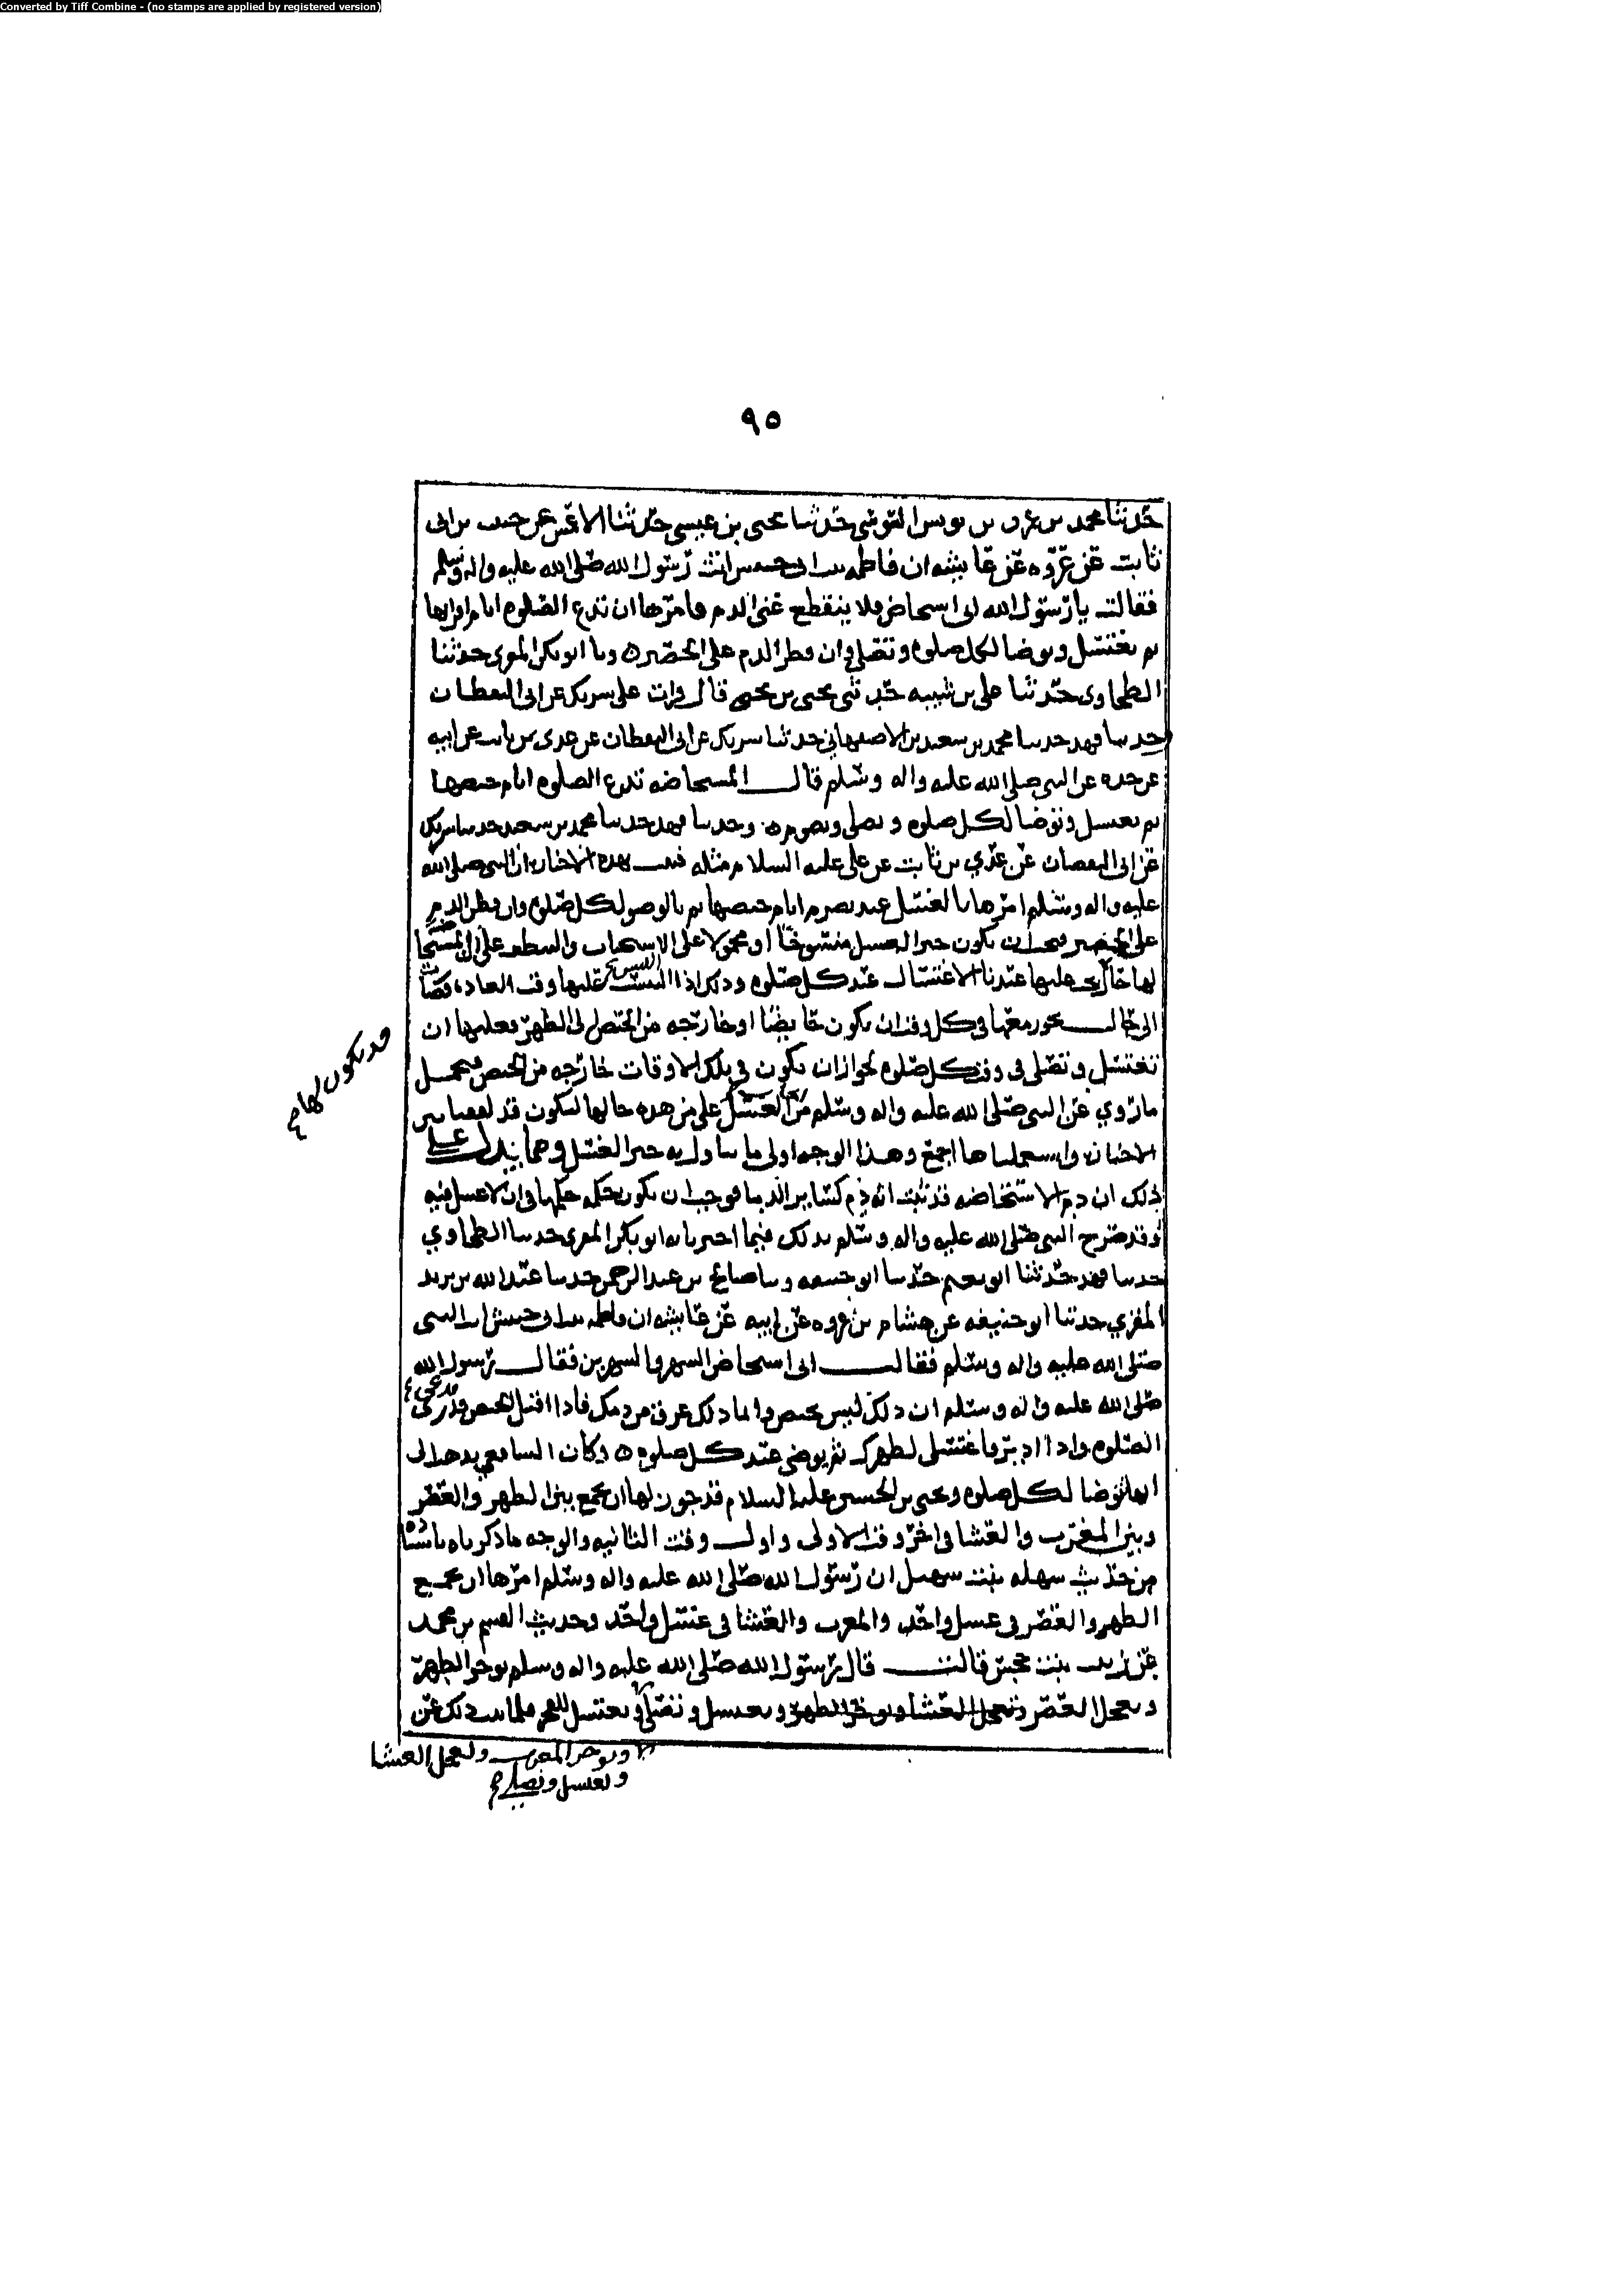 Converted by Tiff Combine - (no stamps are applied by registered version)
٩٥
حدثنا محمد بن عمرو بن يونس حدثنا يحيى بن عيسى حدثنا الاعمش عن حبيب بن ابي
ثابت عن عروه عن عايشه ان فاطمه بنت ابي حبيش اتت رسول الله صلى الله عليه واله وسلم
فقالت يا رسول الله اني استحاض فلا ينقطع عني الدم فامرها ان تدع الصلوه ايام اقرايها
ثم تغتسل وتوضا لكل صلوه وتصلي وان قطر الدم على الحصير ه وبا ابو بكر المقري حدثنا
الطحاوي حدثنا علي بن شيبه حدثني يحيى بن يحيى قال قرات على شريك عن ابي اليقظان
حدثنا فهد حدثنا محمد بن سعيد بن الاصبهاني حدثنا شريك عن ابي اليقظان عن عدي بن ثابت عن ابيه
عن جده عن النبي صلى الله عليه واله وسلم قال المستحاضه تدع الصلوه ايام حيضها
ثم تغتسل وتوضا لكل صلوه وتصلي وتصوم ه وحدثنا فهد حدثنا محمد بن سعيد حدثنا شريك
عن ابي اليقضان عن عدي بن ثابت عن علي عليه السلام مثله فثبت بهذه الاخبار ان النبي صلى الله
عليه واله وسلم امرها بالغسل عند تصرم ايام حيضها ثم بالوضو لكل صلوه وان قطر الدم
على الحصير فيجب ان يكون خبر الغسل منسوخا او محمولا على الاستحباب والتنظف على ان المستحاضه
لها حال يجب عليها عندنا الاغتسال عند كل صلوه وذلك اذا التبست عليها وقت العاده فصارت
الى حال يجوز معها في كل وقت ان تكون حايضا او خارجه من الحيض الى الطهر فعليها ان
تغتسل وتصلي في وقت كل صلوه لجواز ان تكون في تلك الاوقات خارجه من الحيض فيحمل
ما روي عن النبي صلى الله عليه واله وسلم من الغسل على من هذه حالها لنكون قد
الاخبار واستعملناها اجمع وهذا الوجه اولى ما تناول به خبر الغسل ومما يدل على
ذلك ان دم الاستحاضه قد ثبت انه دم كساير الدما فوجب ان يكون حكمه حكمها في ان لا غسل فيه
وقد صرح النبي صلى الله عليه واله وسلم بذلك فيما اخبرنا به ابو بكر المقري حدثنا الطحاوي
حدثنا فهد حدثنا ابو نعيم حدثنا ابو حنيفه وبنا صالح بن عبد الرحمن حدثنا عبد الله بن يزيد
المقري حدثنا ابو حنيفه عن هشام بن عروه عن ابيه عن عايشه ان فاطمه بنت ابي حبيش اتت النبي
صلى الله عليه واله وسلم فقالت اني استحاض الشهر والشهرين فقال رسول الله
صلى الله عليه واله وسلم ان ذلك ليس بحيض وانما ذلك عرق من دمك فاذا اقبل الحيض فدعي
الصلوه واذا ادبر فاغتسلي لطهرك ثم توضي عند كل صلوه ه وكان الشافعي يذهب الى
انها توضا لكل صلوه ويحيى بن الحسين عليه السلام قد جوز لها ان تجمع بين الظهر والعصر
وبين المغرب والعشا في اخر وقت الاولى واول وقت الثانيه والوجه ما ذكرناه باسناده
من حديث سهله بنت سهيل ان رسول الله صلى الله عليه واله وسلم امرها ان تجمع
الظهر والعصر في غسل واحد والمغرب والعشا في غسل واحد وحديث القسم بن محمد
عن زينب بنت جحش قالت قال رسول الله صلى الله عليه واله وسلم توخر الظهر
وتعجل العصر وتغتسل وتصلي وتغتسل للفجر فلما ثبت ذلك عن
قد تكون لها
وتوخر المغرب وتعجل العشا
وتغتسل وتصلي